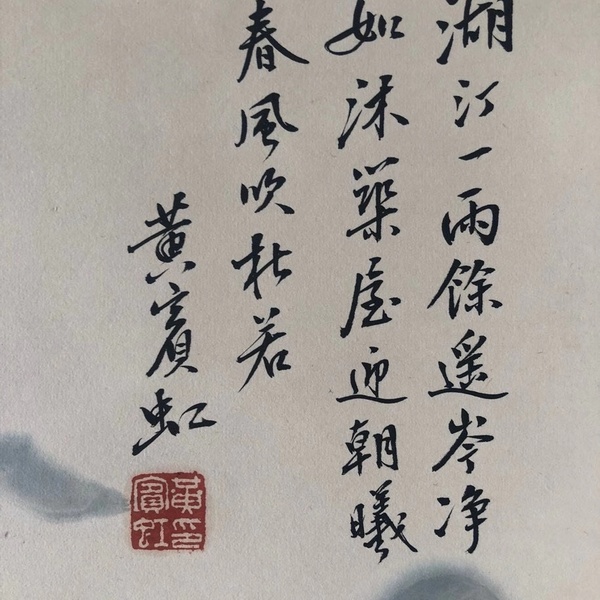 湖汀一雨餘遥岑净
如沐築屋迎朝曦
春風吹杜若
黄賓虹
黄賓虹印